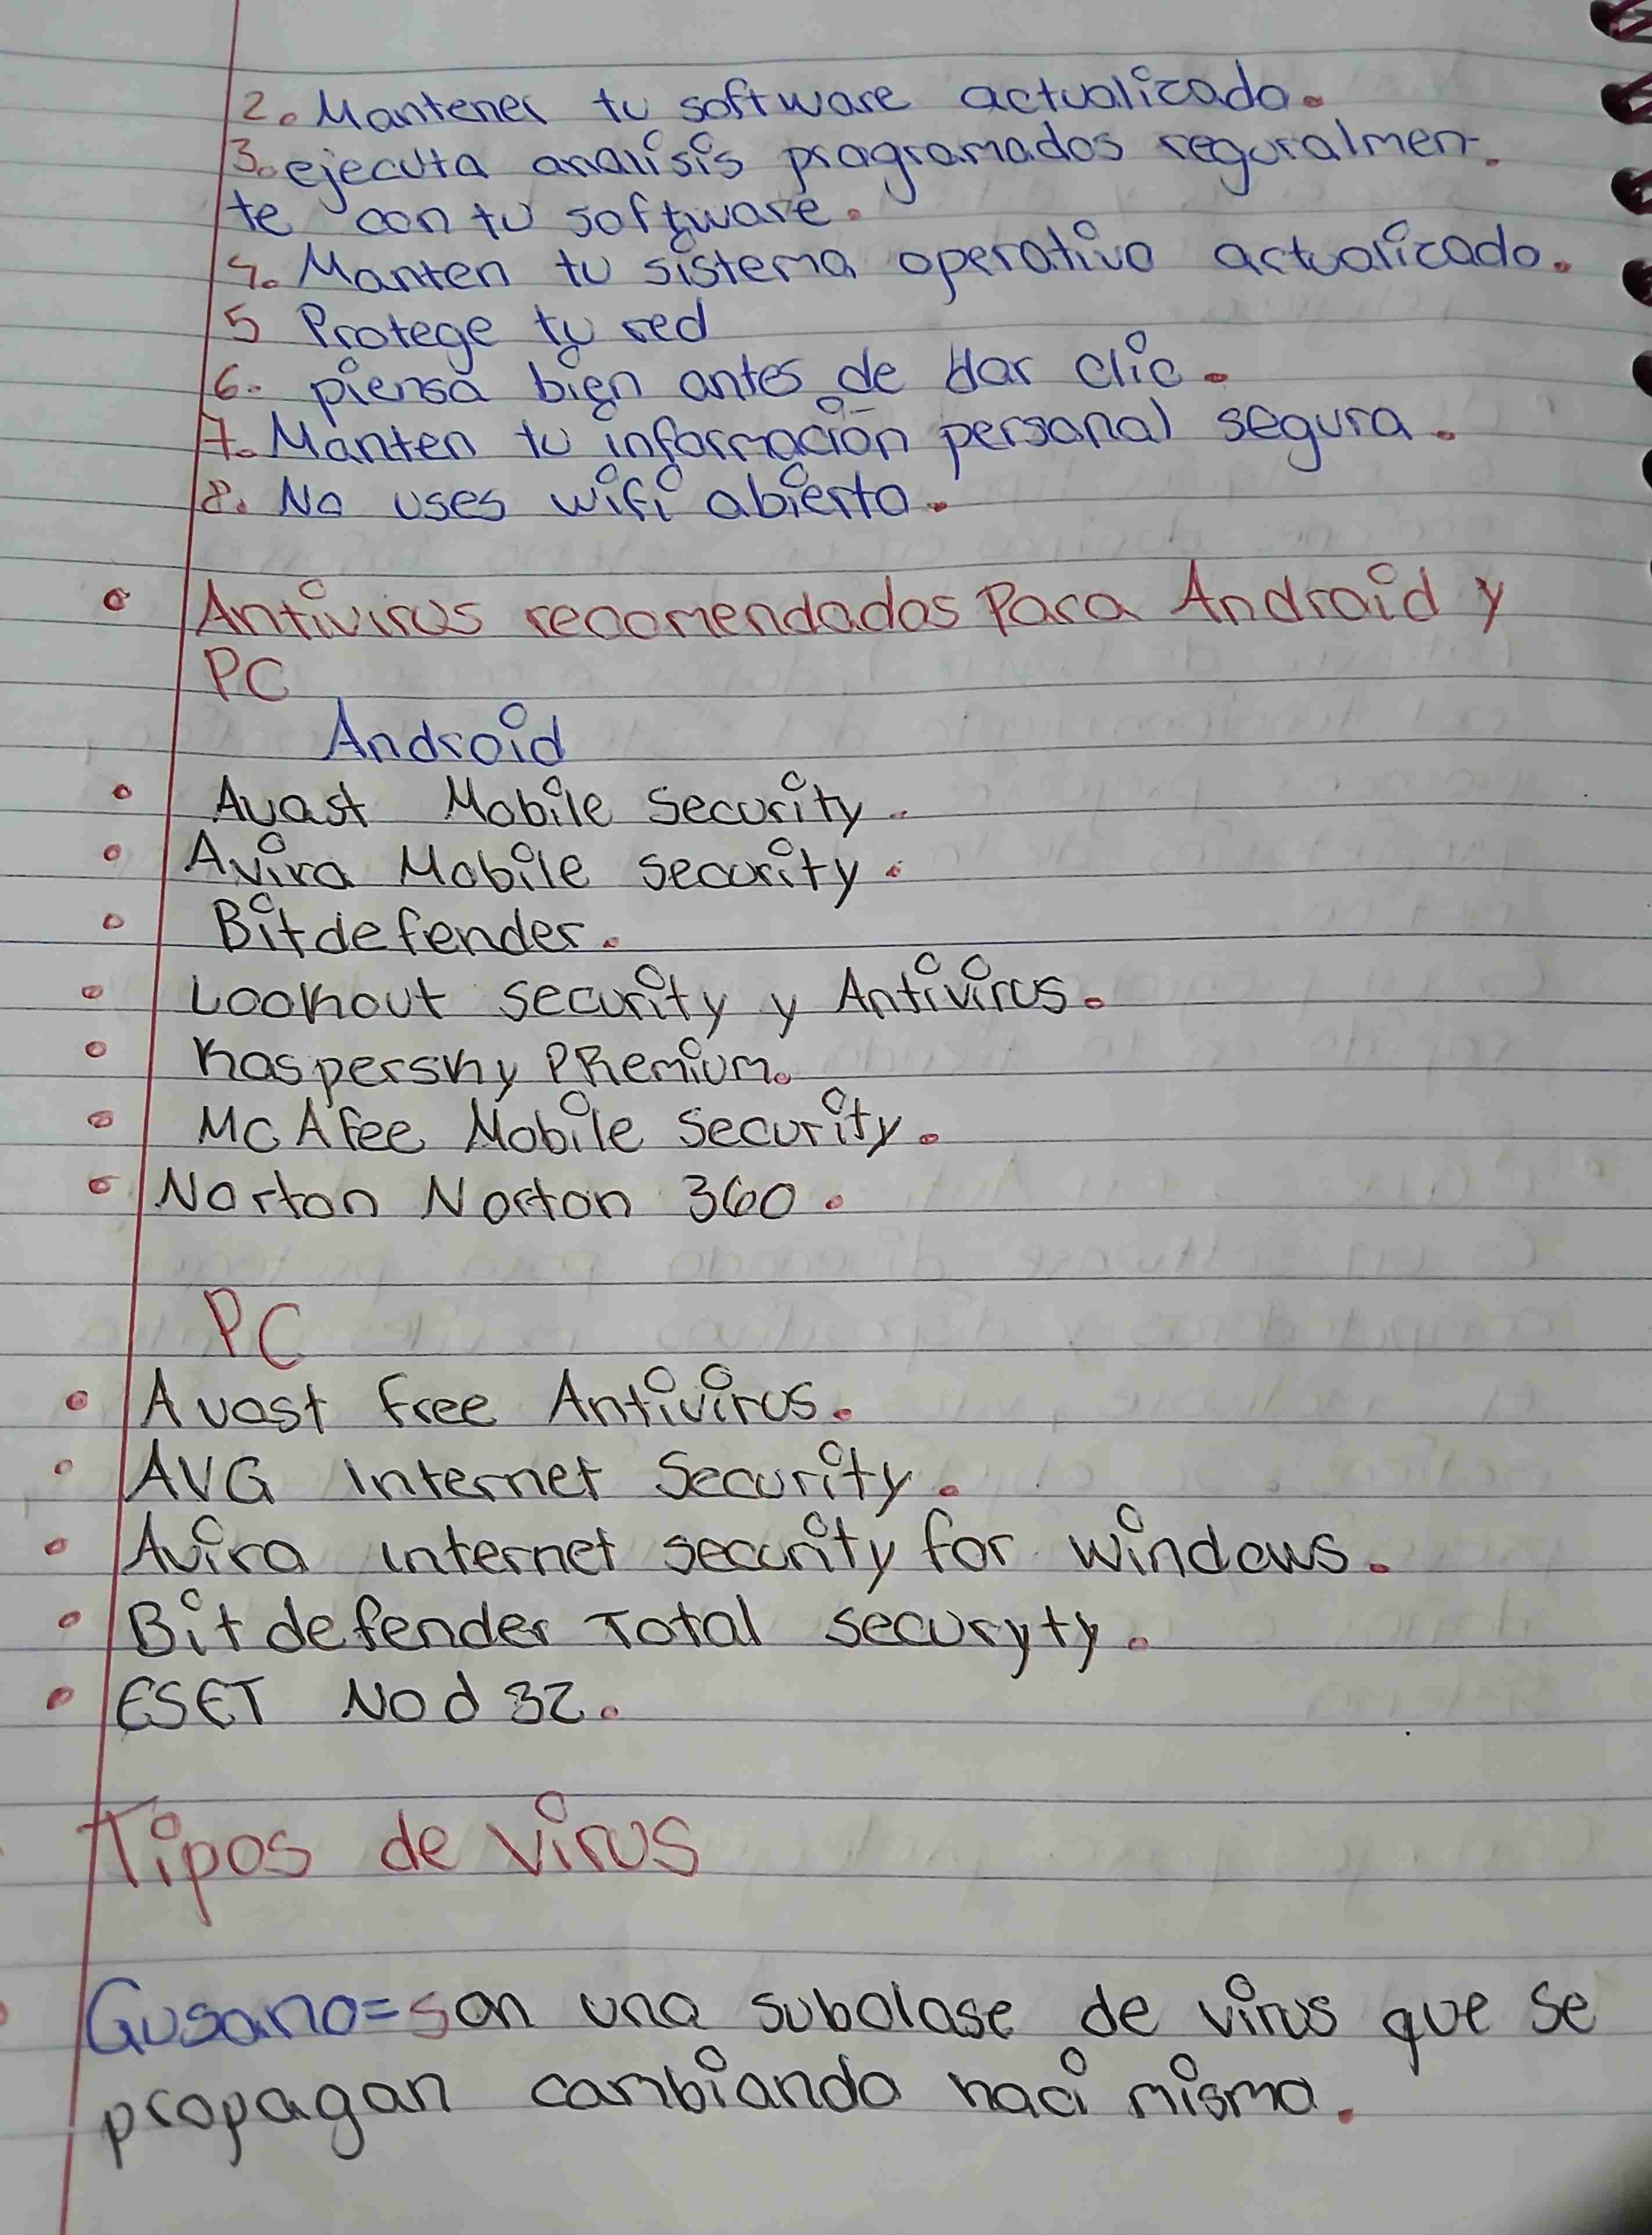 2. Mantener tu software actualizado.
3. ejecuta analisis programados reguralmen-
te con tu software.
4. Manten tu sistema operativo actualizado.
5 Protege tu red
6. piensa bien antes de dar clic.
7. Manten tu información personal segura.
8. No uses wifi abierto.
Antivirus recomendados Para Android y
PC
Android
• Avast Mobile Security.
• Avira Mobile security.
• Bitdefender.
• Lookout security y Antivirus.
• Kaspersky PRemium.
• McAfee Mobile Security.
• Norton Norton 360.
PC
• Avast free Antivirus.
• AVG Internet Security.
• Avira internet security for windows.
• Bitdefender Total securyty.
• ESET Nod 32.
Tipos de virus
Gusano= son una subclase de virus que se
propagan cambiando haci misma.